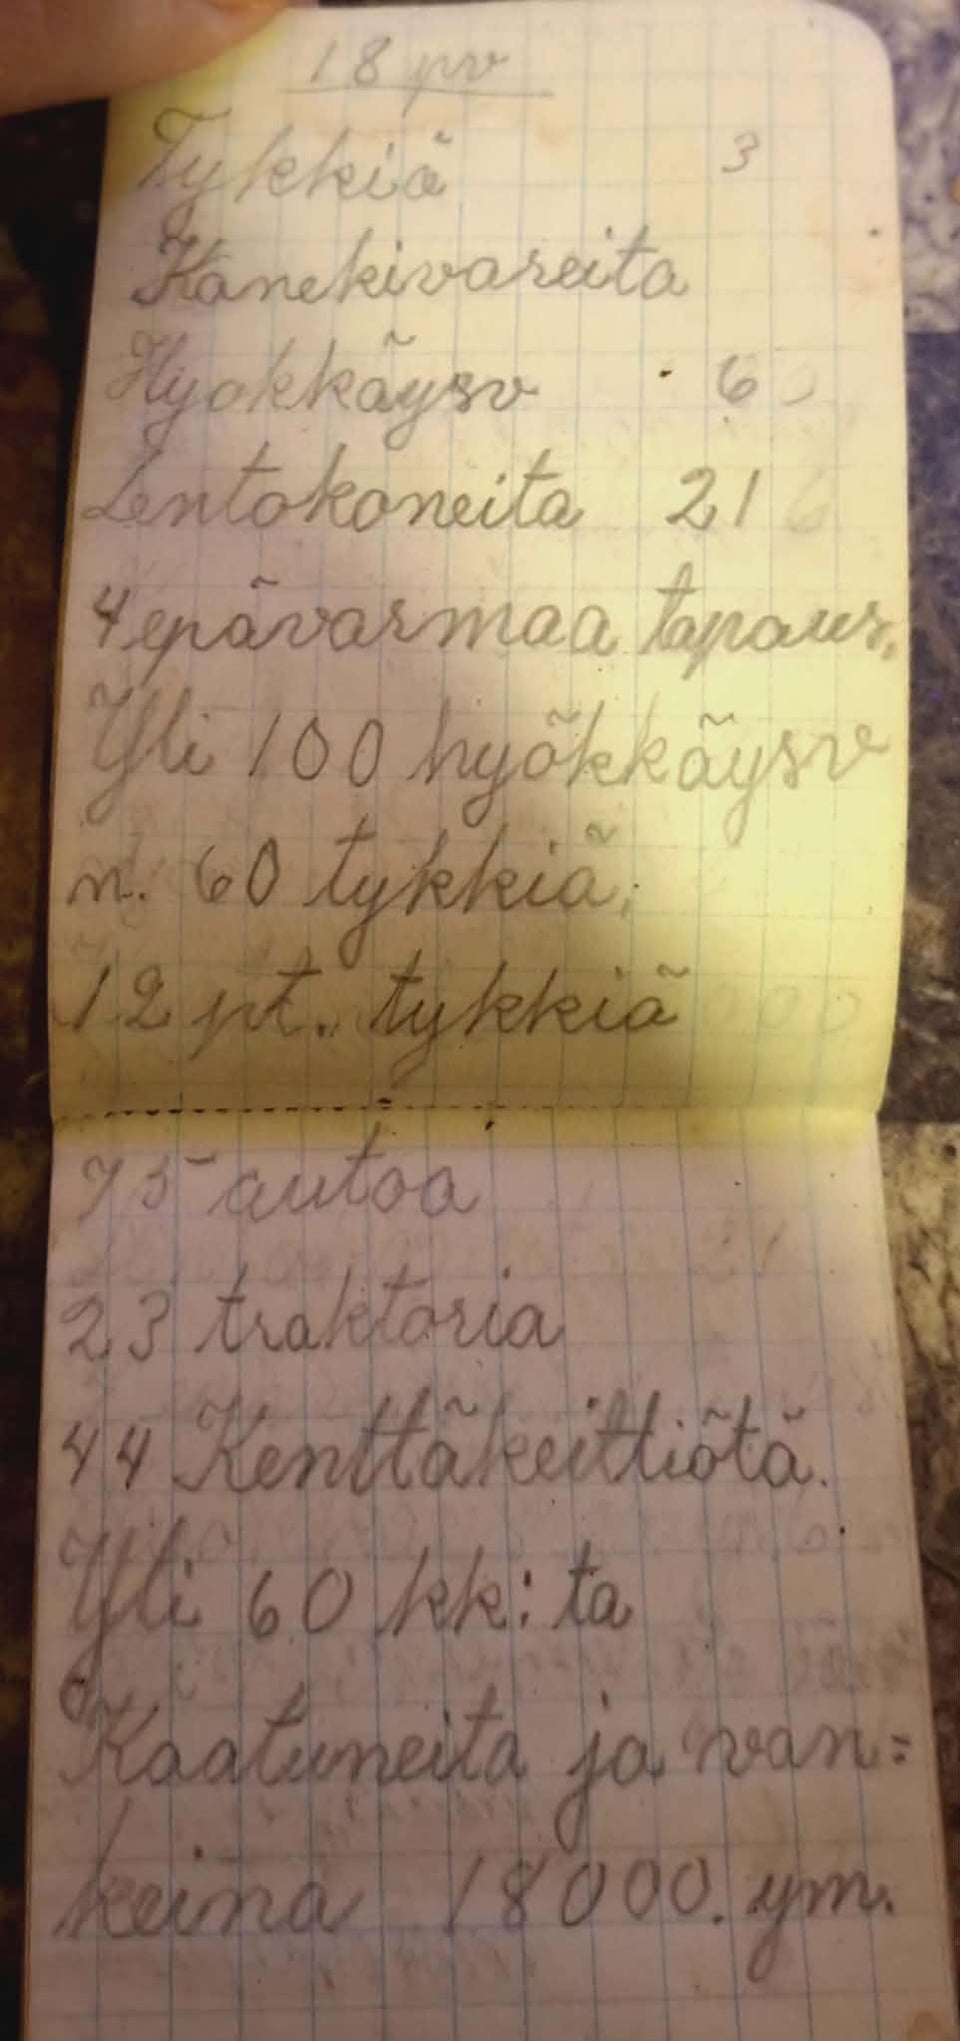 18 pv
Tykkiä 3
Konekivareita
Hyökkäysv 6
Lentokoneita 21
4 epävarmaa tapaus.
Yli 100 hyökkäysv
n. 60 tykkiä,
12 pt. tykkiä
75 autoa
23 traktoria
44 Kenttäkeittiötä.
Yli 60 kk:ta
Kaatuneita ja van=
keina 18000. ym.